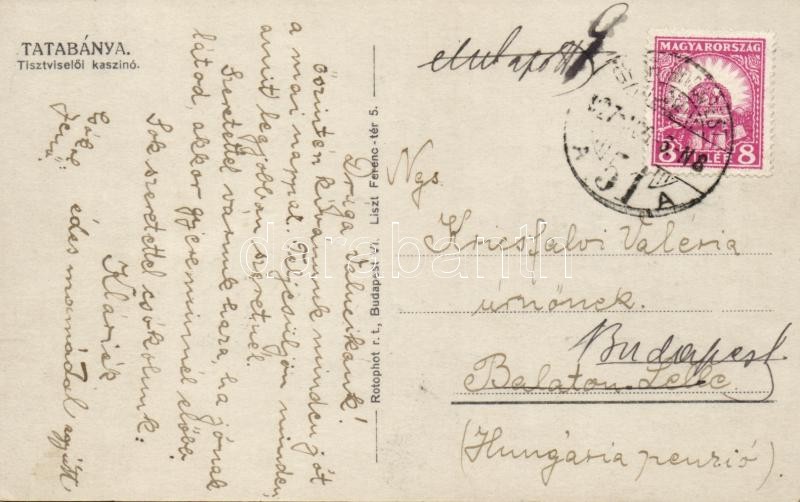 TATABÁNYA.
Tisztviselői kaszinó.
Drága Valucikánk!
Őszintén kívánunk minden jót
a mai nappal. Teljesüljön minden,
amit legjobban szeretnél.
Szeretettel várunk haza, ha jónak
látod, akkor gyere minnél előbb
Sok szeretettel csókolunk:
Kláriék
édes mamáddal együtt
Jenő
Rotophot r. t., Budapest VI. Liszt Ferenc-tér 5.
elutazott
MAGYARORSZÁG
8 FILLÉR 8
A 51 A
Ngs
Kricsfalvi Valéria
úrnőnek.
Budapest
Balaton Lelle
(Hungária penzió)
darabanth